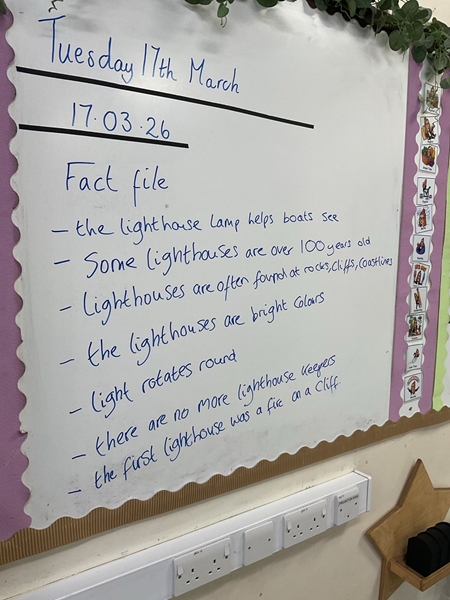 Tuesday 17th March
17.03.26
Fact file
- the lighthouse lamp helps boats see
- Some lighthouses are over 100 years old
- lighthouses are often found at rocks, cliffs, coastlines
- the lighthouses are bright colours
- light rotates round
- there are no more lighthouse keepers
- the first lighthouse was a fire on a cliff